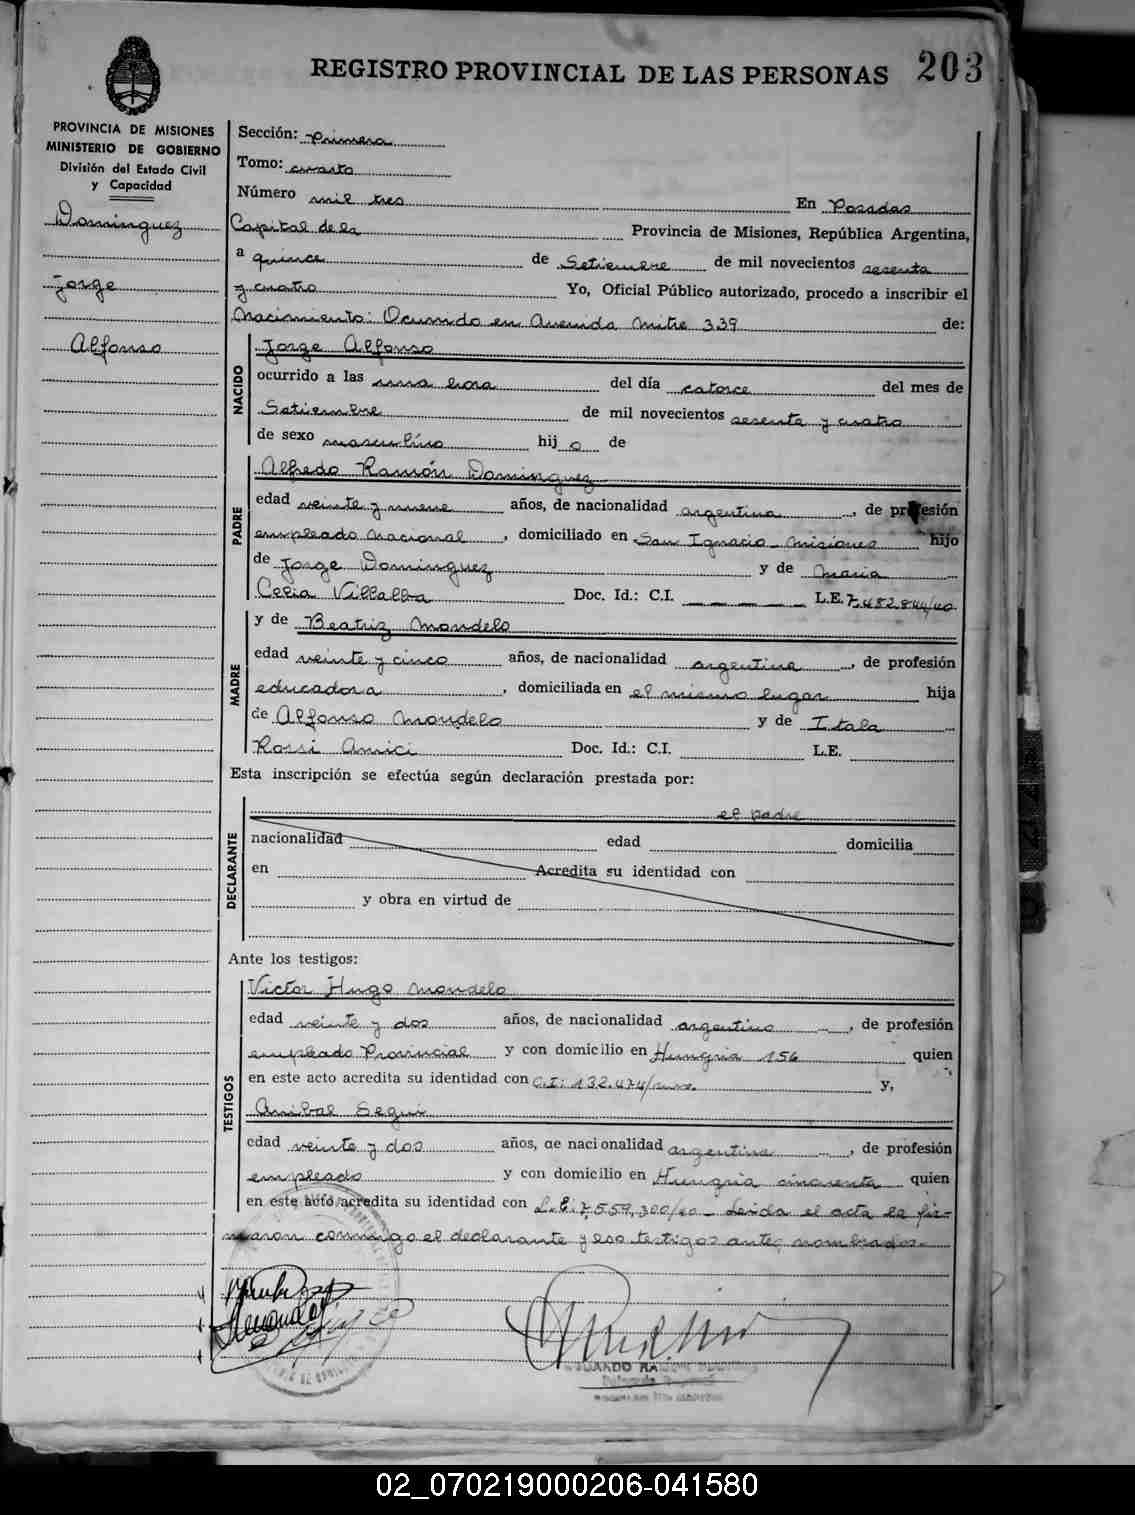 REGISTRO PROVINCIAL DE LAS PERSONAS 203
PROVINCIA DE MISIONES
MINISTERIO DE GOBIERNO
División del Estado Civil
y Capacidad
Dominguez
Jorge
Alfonso
Sección: Primera
Tomo: cuarto
Número mil tres En Posadas
Capital de la Provincia de Misiones, República Argentina,
a quince de Setiembre de mil novecientos sesenta
y cuatro Yo, Oficial Público autorizado, procedo a inscribir el
Nacimiento: Ocurrido en Avenida Mitre 339 de:
NACIDO
Jorge Alfonso
ocurrido a las una hora del día catorce del mes de
Setiembre de mil novecientos sesenta y cuatro
de sexo masculino hij o de
PADRE
Alfredo Ramón Dominguez
edad veinte y nueve años, de nacionalidad argentina, de profesión
empleado nacional, domiciliado en San Ignacio - Misiones hijo
de Jorge Dominguez y de Maria
Celia Villalba Doc. Id.: C.I. _ _ _ _ _ L.E. 7.482.844/40
MADRE
y de Beatriz Mondelo
edad veinte y cinco años, de nacionalidad argentina, de profesión
educadora, domiciliada en el mismo lugar hija
de Alfonso Mondelo y de Itala
Rossi Amici Doc. Id.: C.I. L.E.
Esta inscripción se efectúa según declaración prestada por:
DECLARANTE
el padre
nacionalidad edad domicilia
en Acredita su identidad con
y obra en virtud de
Ante los testigos:
TESTIGOS
Victor Hugo Mondelo
edad veinte y dos años, de nacionalidad argentino, de profesión
empleado Provincial y con domicilio en Hungria 156 quien
en este acto acredita su identidad con C.I: 132.474/mns. y,
Anibal Segui
edad veinte y dos años, de nacionalidad argentina, de profesión
empleado y con domicilio en Hungria cincuenta quien
en este acto acredita su identidad con L.E: 7.559.300/40 - Leida el acta la fir-
maron conmigo el declarante y eso testigos antes nombrados.-
02_070219000206-041580